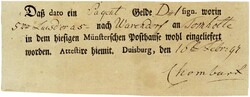 Daß dato ein Paquet Gelde Dol sign. worin
500 Luisdor a 5 nach Warendorf an
in dem hiesigen Münsterschen Posthause wohl eingeliefert
worden. Attestire hiemit. Duisburg, den 10 Febr 94